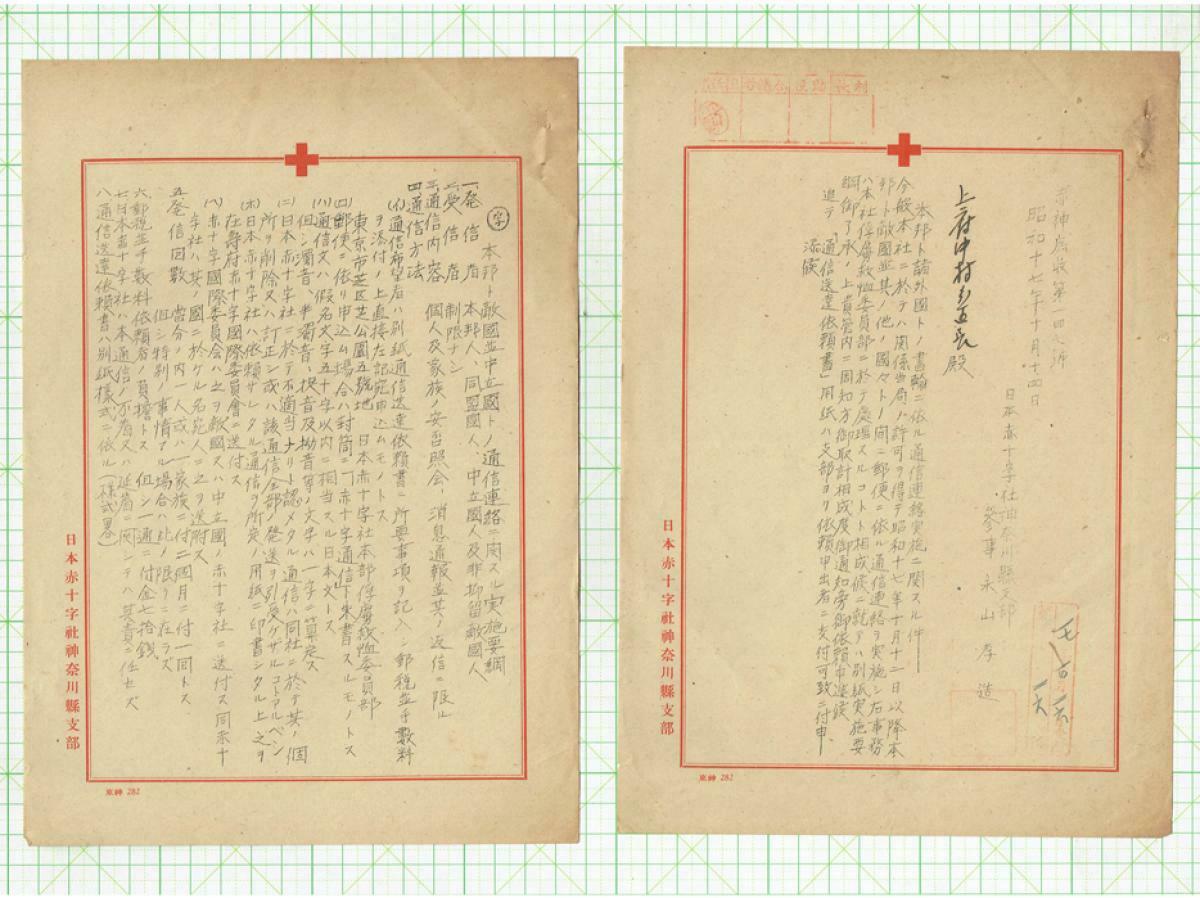 昭和十七年十月十四日
日本赤十字社神奈川縣支部
參事 永山孝造
上府中村長殿
本邦ト諸外國トノ書翰ニ依ル通信連絡実施ニ関スル件
今般本社ニ於テハ関係当局ノ許可ヲ得テ昭和十七年十月十二日以降本
邦ト敵國並其ノ他ノ國々トノ間ニ郵便ニ依ル通信連絡ヲ実施シ右事務
ハ本社俘虜救恤委員部ニ於テ處理スルコトト相成候ニ就テハ別紙実施要
綱御了承ノ上貴管内ニ周知方御取計相成度御通知旁御依頼申進候
追テ「通信送達依頼書」用紙ハ支部ヨリ依頼申出者ニ交付可致ニ付申
添候
日本赤十字社神奈川縣支部
東神 282
(写) 本邦ト敵國並中立國トノ通信連絡ニ関スル実施要綱
一、発信者 本邦人、同盟國人、中立國人及非抑留敵國人
二、受信者 制限ナシ
三、通信内容 個人及家族ノ安否照会、消息通報並其ノ返信ニ限ル
四、通信方法
(イ)通信希望者ハ別紙通信送達依頼書ニ所要事項ヲ記入シ郵税並手數料
ヲ添付ノ上直接左記宛申込ムモノトス
東京市芝区芝公園五號地 日本赤十字社本部俘虜救恤委員部
(ロ)郵便ニ依リ申込ム場合ハ封筒ニ「赤十字通信」下朱書スルモノトス
(ハ)通信文ハ假名文字五十字以内ニ相当スル日本文トス
但シ濁音、半濁音、拔音及拗音等ノ文字ハ一字ニ算定ス
(ニ)日本赤十字社ニ於テ不適当ナリト認メタル通信ハ同社ニ於テ其ノ個
所ヲ削除又ハ訂正シ或ハ該通信全部ノ発送ヲ引受ケザルコトアルベシ
(ホ)日本赤十字社ハ依頼サレタル通信ヲ所定ノ用紙ニ印書シタル上之ヲ
在壽府赤十字國際委員會ニ送付ス
(ヘ)赤十字國際委員会ハ之ヲ敵國又ハ中立國ノ赤十字社ニ送付ス同赤十
字社ハ其ノ國ニ於ケル名宛人ニ之ヲ送附ス
五、発信回數 當分ノ内一人或ハ一家族ニ付二個月ニ付一回トス
但シ特別ノ事情アル場合ハ此ノ限リニ在ラズ
六、郵税並手數料 依頼者ノ負擔トス 但シ一通ニ付金七拾銭
七、日本赤十字社ハ本通信ノ不着又ハ延着ニ関シテハ其責ニ任セズ
八、通信送達依頼書ハ別紙様式ニ依ル(様式畧)
日本赤十字社神奈川縣支部
東神 282